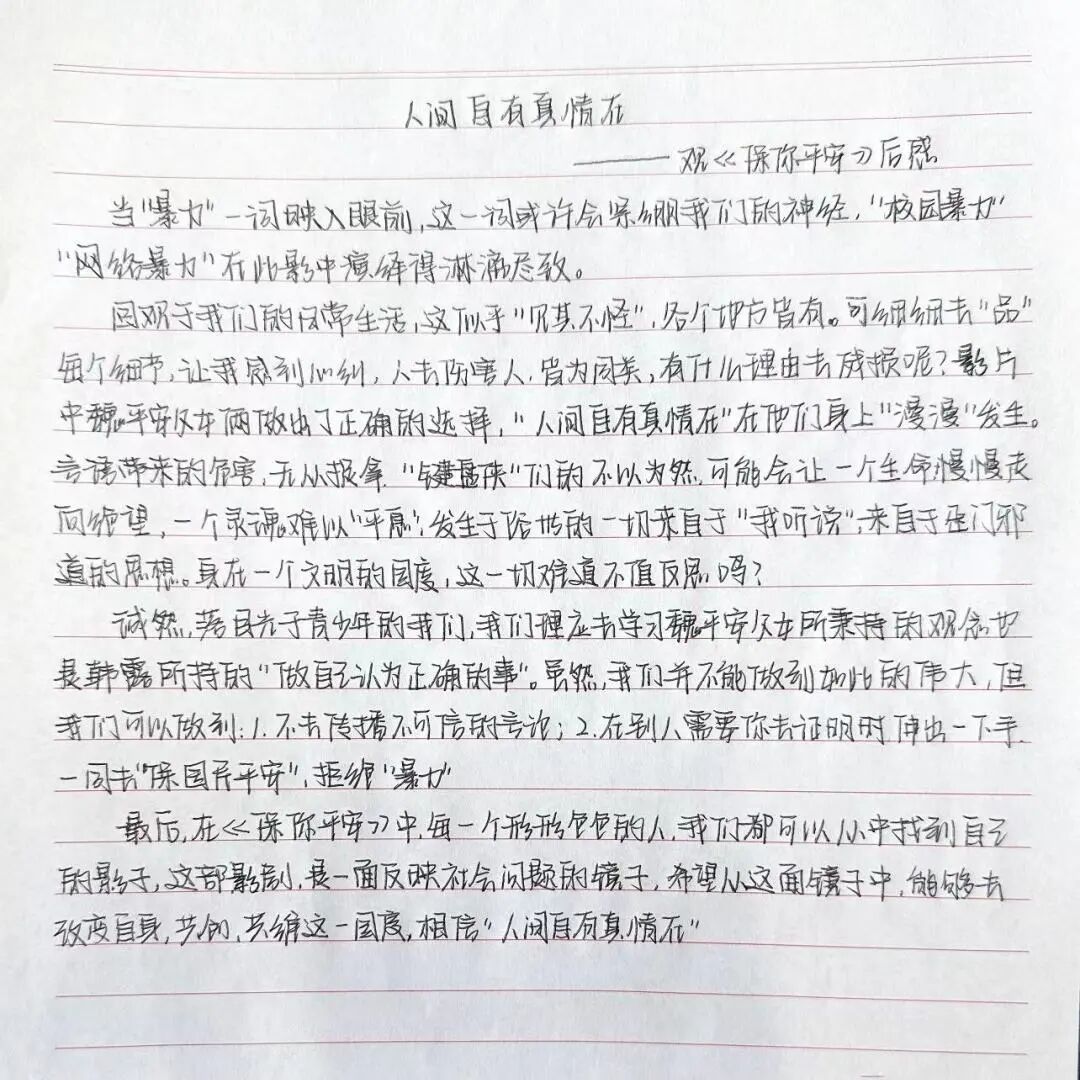 人间自有真情在
——观《保你平安》后感
当"暴力"一词映入眼前,这一词或许会紧绷我们的神经,"校园暴力"
"网络暴力"在此影中演绎得淋漓尽致。
回观于我们的日常生活,这似乎"见其不怪",各个地方皆有。可细细去"品"
每个细节,让我感到心纠,人去伤害人,皆为同类,有什么理由去残损呢?影片
中魏平安父女俩做出了正确的选择,"人间自有真情在"在他们身上"漫漫"发生。
言语带来的危害,无从报拿,"键盘侠"们的不以为然,可能会让一个生命慢慢走
向绝望,一个灵魂难以"平息",发生于俗世的一切来自于"我听说",来自于歪门邪
道的思想。身在一个文明的国度,这一切难道不值反思吗?
诚然,落目光于青少年的我们,我们理应去学习魏平安父女所秉持的观念也
是韩露所持的"做自己认为正确的事"。虽然,我们并不能做到如此的伟大,但
我们可以做到:1.不去传播不可信的言论;2.在别人需要你去证明时伸出一下手,
一同去"保国际平安",拒绝"暴力"
最后,在《保你平安》中,每一个形形色色的人,我们都可以从中找到自己
的影子,这部影剧,是一面反映社会问题的镜子,希望从这面镜子中,能够去
改变自身,共创,共维这一国度,相信"人间自有真情在"